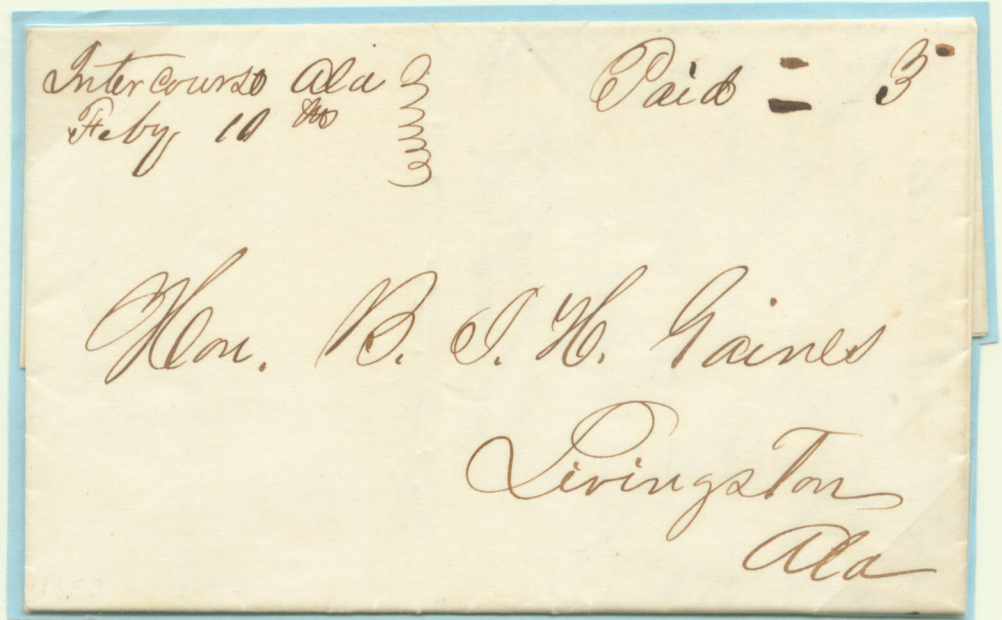 Intercourse Ala
Feby 10th
Paid = 3
Hon. B. I. H. Gaines
Livingston
Ala